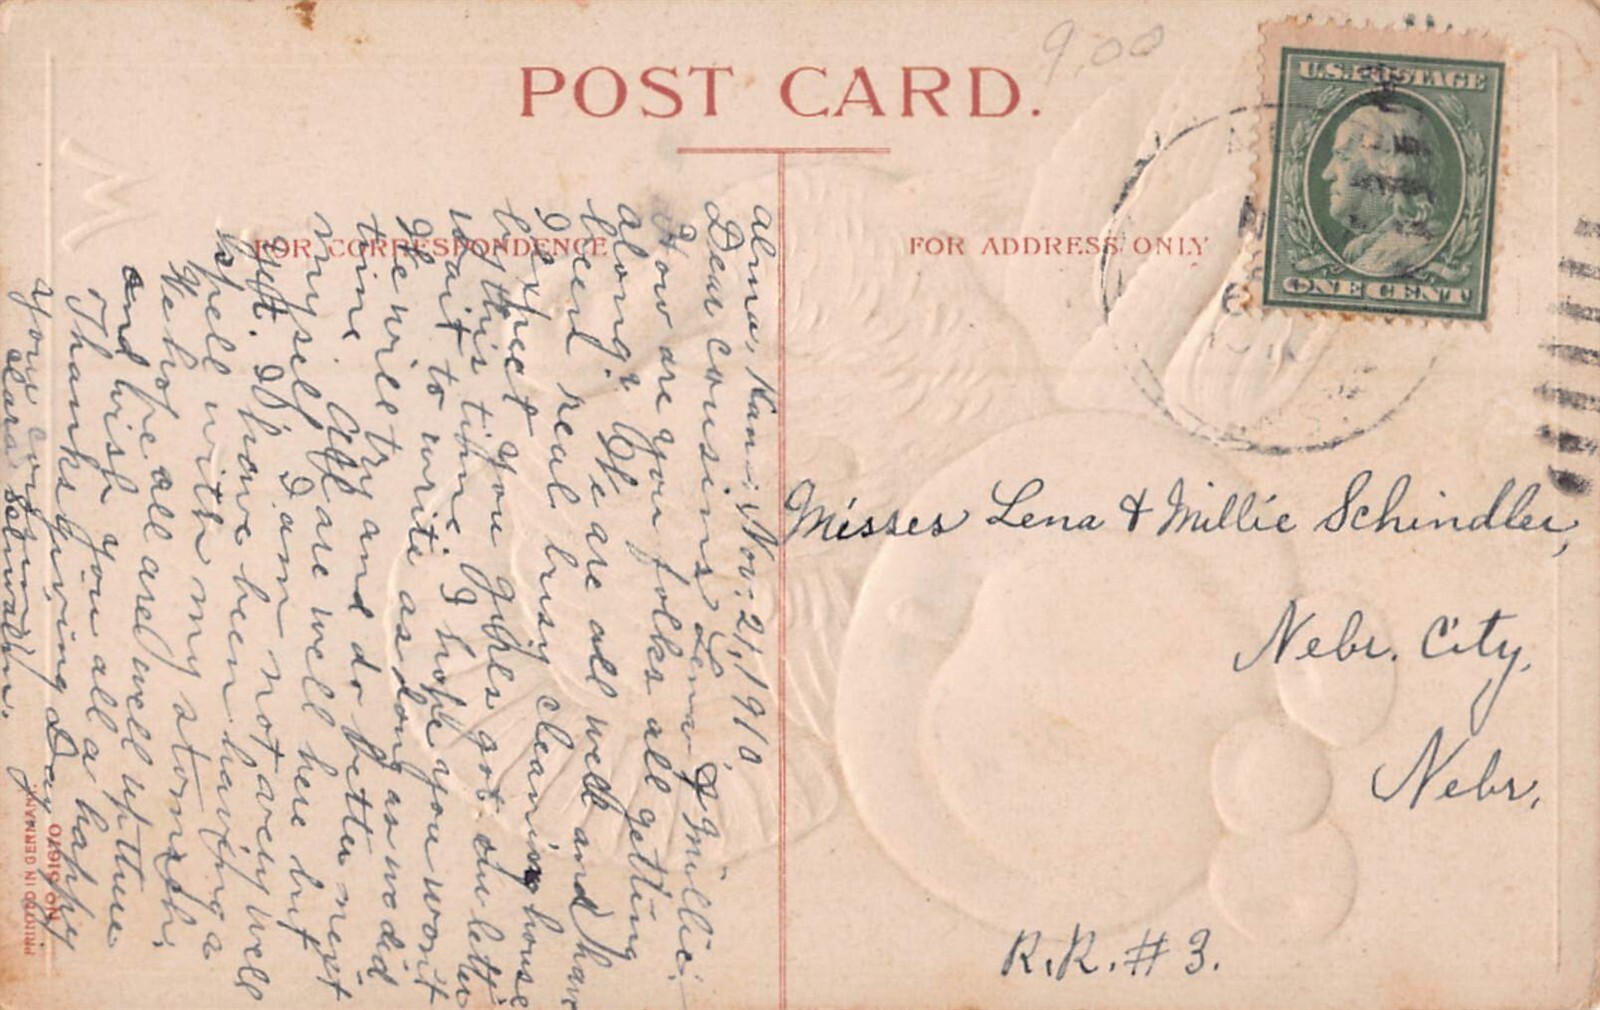 POST CARD.
9.00
U.S. POSTAGE
ONE CENT
FOR CORRESPONDENCE
FOR ADDRESS ONLY
Alma, Kans. Nov. 21, 1910
Dear cousins Lena & Millie:
How are you folks all getting
along? We are all well and have
been real busy cleaning house
I expect you girls got our letter
by this time. I hope you won't
wait to write as long as we did
We will try and do better next
time. All are well here but
myself. I am not very well
yet. I have been having a
spell with my stomach.
We hope all are well up there
and wish you all a happy
Thanksgiving Day.
Your cousin
Clara
Misses Lena & Millie Schindler,
Nebr. City,
Nebr.
R.R. # 3.
PRINTED IN GERMANY.
NO